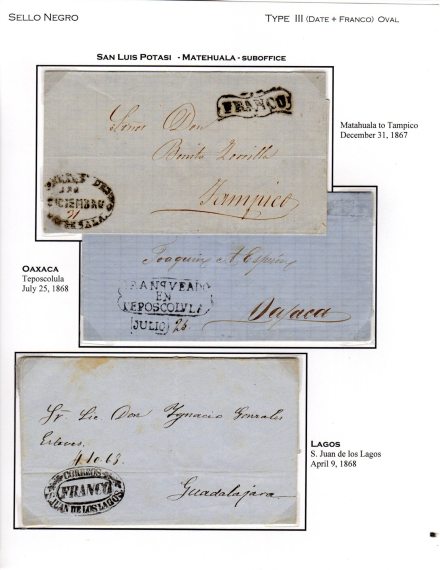 SELLO NEGRO
TYPE III (DATE + FRANCO) OVAL
SAN LUIS POTASI - MATEHUALA - SUBOFFICE
FRANCO
Señor Don
Benito Zorrilla
Tampico
DICIEMBRE
31
Matahuala to Tampico
December 31, 1867
OAXACA
Teposcolula
July 25, 1868
Joaquin A
FRANQUEADO
EN
TEPOSCOLULA
JULIO 25
Oaxaca
Sr. Lic Don Ignacio Gonzales
Esteves
CORREOS
FRANCO
S. JUAN DE LOS LAGOS
Guadalajara
LAGOS
S. Juan de los Lagos
April 9, 1868